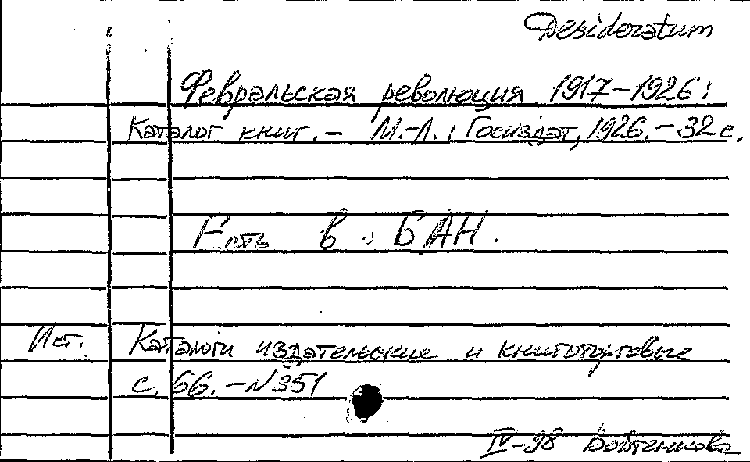 Desideratum
Февральская революция 1917-1926:
Каталог книг. - М.-Л.: Госиздат, 1926. - 32 с.
Есть в БАН.
Ист. Каталоги издательские и книготорговые
с. 66. - №351
IV-98